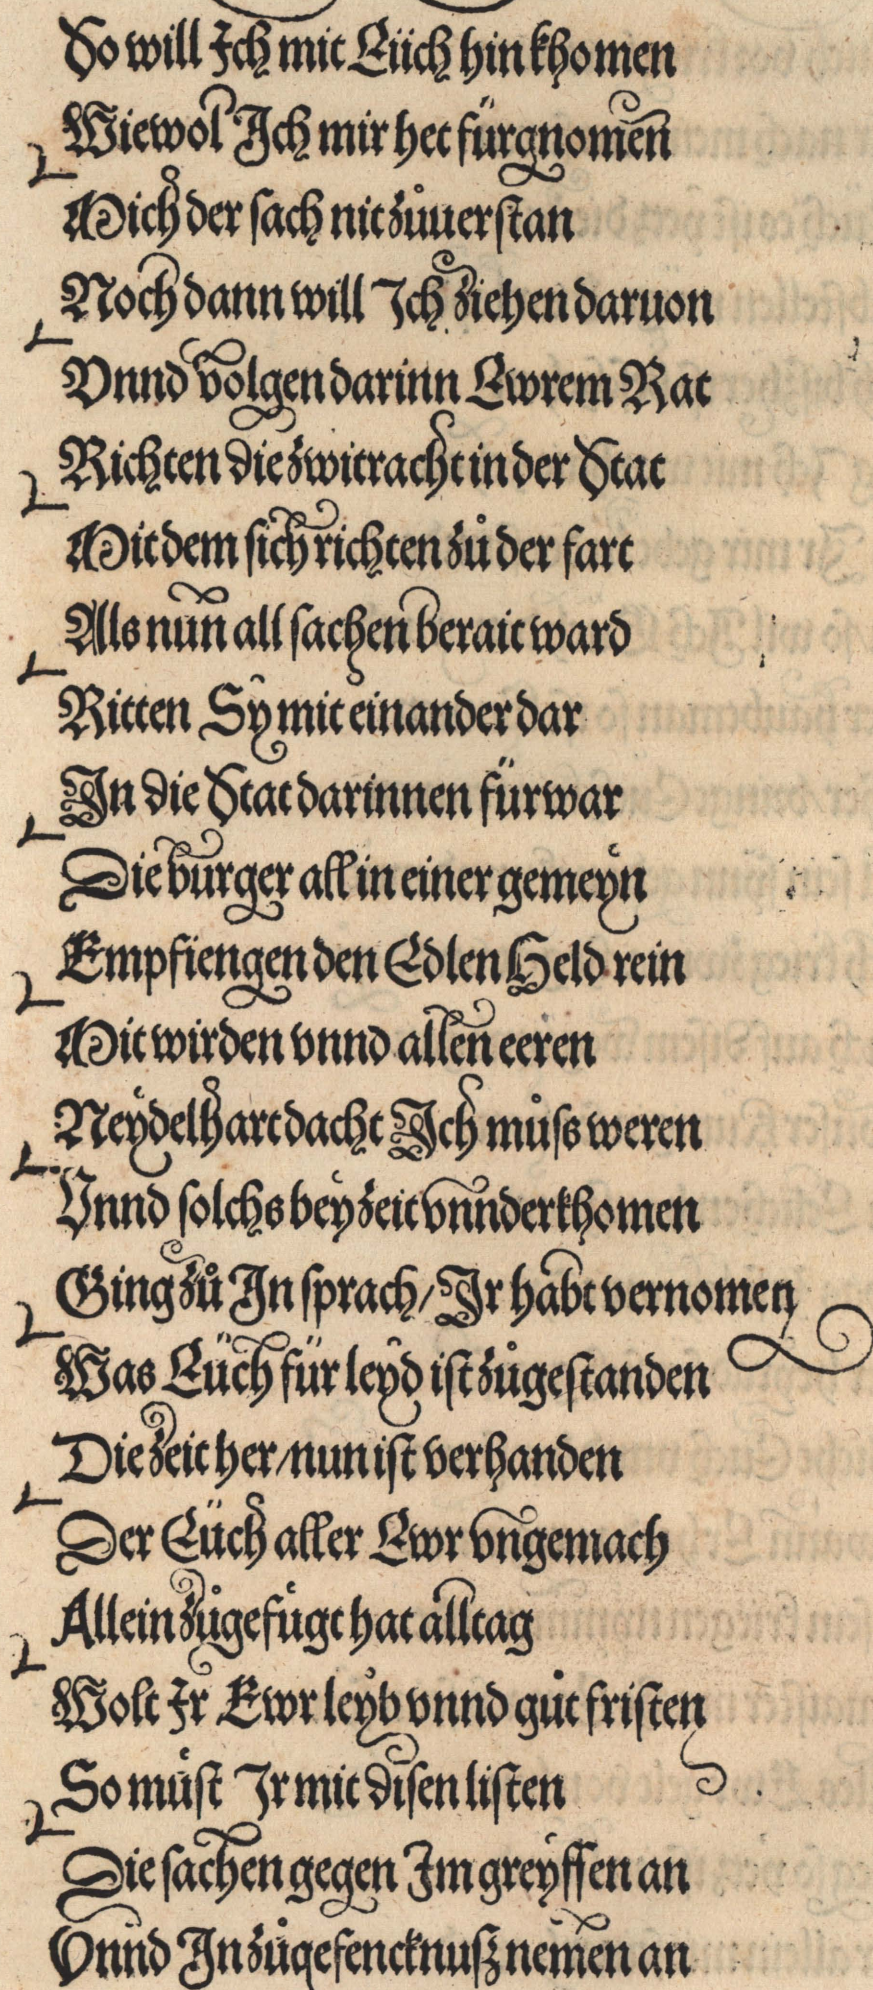 So will Ich mit Eüch hin khomen
Wiewol Ich mir het fürgnomen
Mich der sach nit zůuerstan
Noch dann will Ich ziehen daruon
Vnnd volgen darinn Ewrem Rat
Richten die zwitracht in der Stat
Mit dem sich richten zů der fart
Als nun all sachen berait ward
Ritten Sy mit einander dar
In die Stat darinnen fürwar
Die burger all in einer gemeyn
Empfiengen den Edlen Held rein
Mit wirden vnnd allen eeren
Neydelhart dacht Ich můss weren
Vnnd solchs bey zeit vnnderkhomen
Ging zů In sprach/ Ir habt vernomen
Was Eüch für leyd ist zůgestanden
Die zeit her/ nun ist verhanden
Der Eüch aller Ewr vngemach
Allein zůgefůgt hat alltag
Wolt Ir Ewr leyb vnnd gůt fristen
So můst Ir mit disen listen
Die sachen gegen Im greyffen an
Vnnd In zůgefencknuſz nemen an